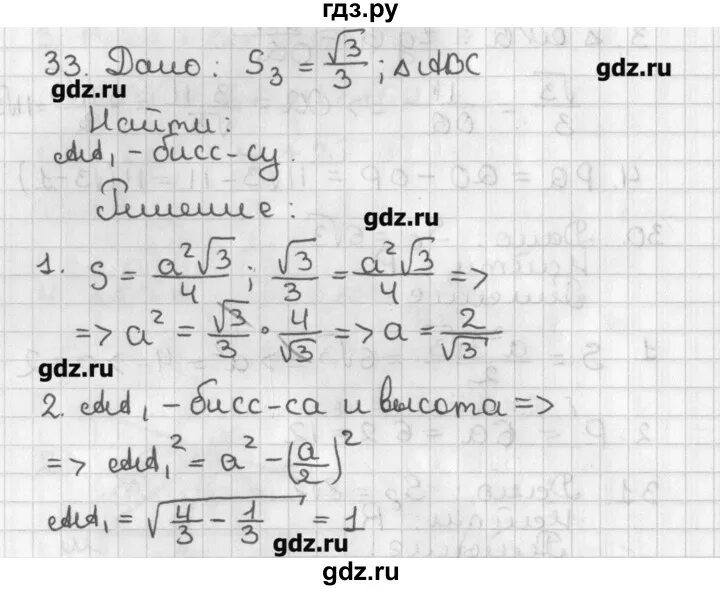 гдз.ру
33. Дано: S₃ = √3/3; △ABC
gdz.ru
gdz.ru
Найти:
AA₁ - бисс-су.
Решение:
gdz.ru
1. S = a²√3/4; √3/3 = a²√3/4 =>
=> a² = √3/3 · 4/√3 => a = 2/√3
gdz.ru
2. AA₁ - бисс-са и высота =>
=> AA₁² = a² - (a/2)²
AA₁ = √(4/3 - 1/3) = 1
gdz.ru
gdz.ru